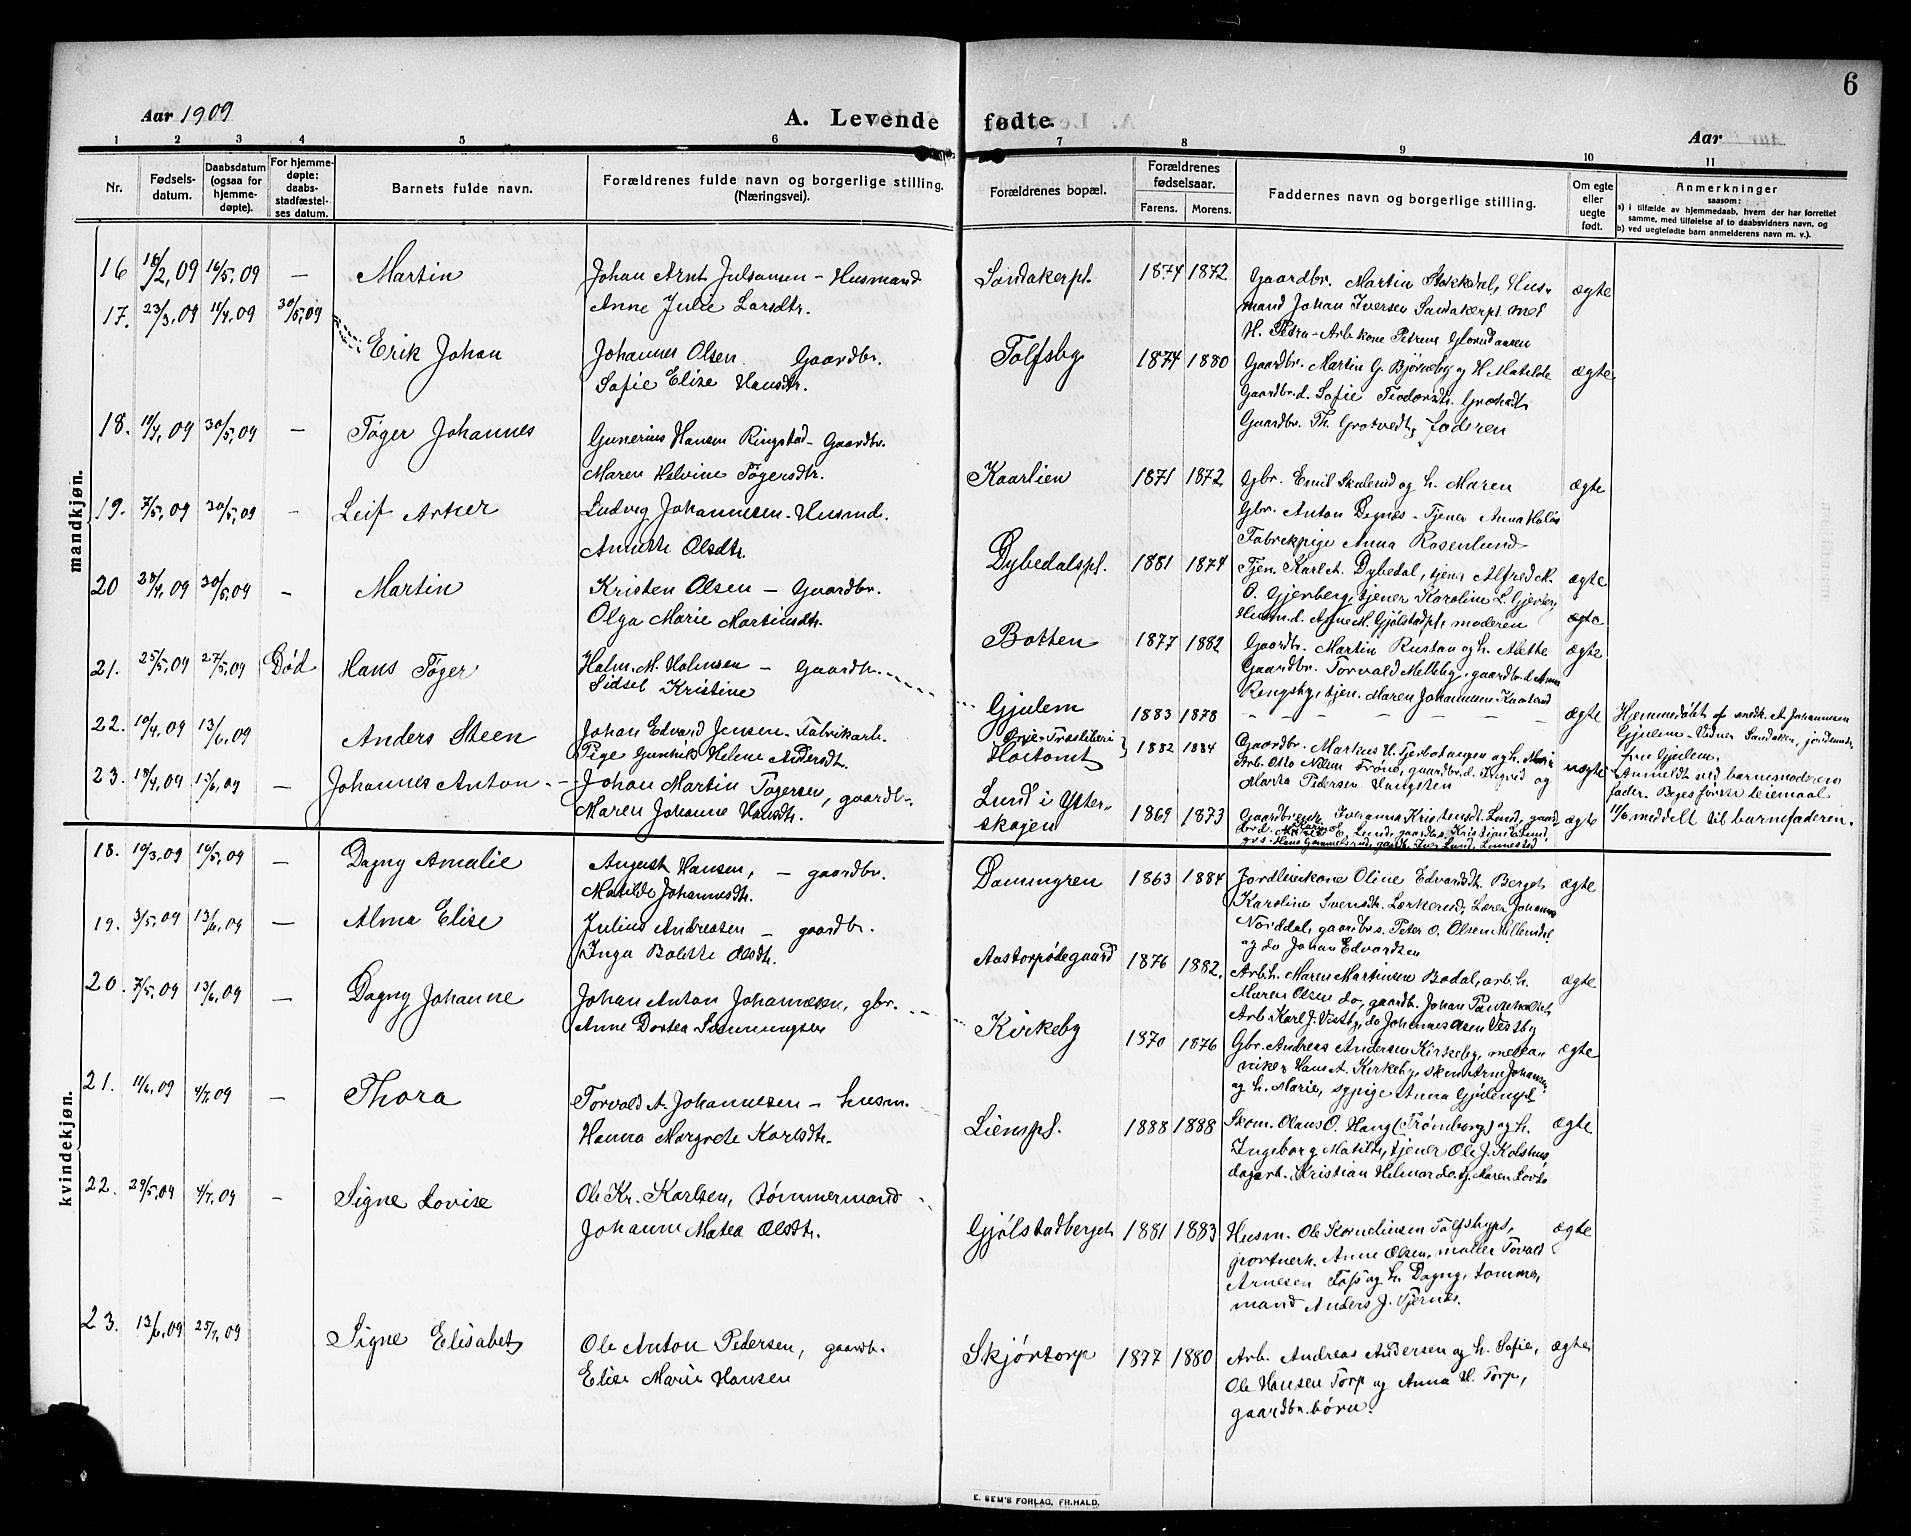 6
Aar 1909
A. Levende fødte.
Aar
1 2 3 4 5 6 7 8 9 10 11
Nr.
Fødsels-
datum.
Daabsdatum
(ogsaa for
hjemme-
døpte).
For hjemme-
døpte:
daabs-
stadfæstel-
ses datum.
Barnets fulde navn.
Forældrenes fulde navn og borgerlige stilling.
(Næringsvei).
Forældrenes bopæl.
Forældrenes
fødselsaar.
Farens. Morens.
Faddernes navn og borgerlige stilling.
Om egte
eller
uegte
født.
Anmerkninger
saasom:
a) i tilfælde av hjemmedaab, hvem der har forrettet
samme, med tilføielse af to daabsvidners navn, og
b) ved uegtefødte barn anmelderens navn m. v.).
mandkjøn.
16 18/2, 09 16/5, 09 – Martin
Johan Arnt Julsamen – Husmand
Anne Julie Larsdtr.
Sandakerpl. 1874 1872
Gaardbr. Martin Stokkdal, Hus-
mand Johan Iversen Sandakerpl med
H. Petra – Arb.kone Petrine
ægte
17. 23/3, 09 11/4, 09 30/5, 09 Erik Johan
Johannes Olsen Gaardbr.
Sofie Elise Hansdtr.
Tolfsby 1874 1880
Gaardbr. Martin G. Bjørneby og H. Matilde
Gaardbr.d. Sofie Teodorsdtr. Grotvedt
Gaardbr. Th. Grotvedt, faderen
ægte
18. 11/4, 09 30/5, 09 – Tøger Johannes
Gunerius Hansen Ringstad – Gaardbr.
Maren Helvine Tøgersdtr.
Kaarlien 1871 1872
Gbr. Emil Skulerud og h. Maren
Gbr. Anton Degnes – Tjener Anna Holøs
Fabrikpige Anna Rosenlund
ægte
19. 7/5, 09 30/5, 09 – Leif Arker
Ludvig Johannesen – Husmd.
Annette Olsdtr.
Dybedalspl. 1881 1874
Tjen. Karl A. Dybedal, tjener Alfred M.
O. Gjerberg, tjener Karoline L. Gjerberg,
Husm.d. Agne M. Gjølstadpl, moderen
ægte
ægte
20 20/4, 09 30/5, 09 – Martin
Kristen Olsen – Gaardbr.
Olga Marie Martinsdtr.
Botten 1877 1882
Gaardbr. Martin Rustan og h. Alette
Gaardbr. Torvald Melleby, gaardbr.d. Anna
Ringsby, tjen. Maren Johannesen Knatterud
ægte
21. 25/5, 09 27/5, 09 Død Hans Tøger
Halm. M. Halmsen – Gaardbr.
Sidsel Kristine
Gjulem 1883 1878 – – – – – – – ægte
Hjemmedøbt af snedk. A. Johannesen
Gjulem – Vidner Sandaker, jordmoder
fru Gjulem.
22. 10/4, 09 13/6, 09 Anders Steen
Johan Edvard Jensen – Fabrikarb.
Pige Gunhild Helene Andersdt.
Ørje – Træsliberi
Holtomt 1882 1884
Gaardbr. Markus H. Tjerbotangen og h. Marie
Arb. Otto Nilsen Trøne, gaardbr.d. Ingrid og
Marta Pedersen Haugsten
uægte
Anmeldt ved barnemoderens
fader. Beges første leiemaal
11/6 meddelt til barnefaderen.
23. 18/4, 09 13/6, 09 – Johannes Anton
Johan Martin Tøgersen, gaardb.
Maren Johanne Hansdtr.
Lund i Ytter-
skogen 1869 1873
Gaardbrenk. Iveranna Kristensdt. Lund, gaard-
ægte
kvindekjøn.
18. 19/3, 09 16/5, 09 – Dagny Amalie
August Hansen, – gaardbr.
Matilde Johannesdtr.
Dammyren 1863 1884
Jordleierkone Oline Edvardsdt. Berget
Karoline Svensdtr. Lærkerud, Lærer Johannes
Norddal, gaardbr.s. Peter O. Olsen
og do Johan Edvardsen
ægte
19. 3/5, 09 13/6, 09 – Alma Elise
Julius Andreasen – gaardbr.
Inga Bolette Olsdtr.
Aastorpødegaard 1876 1882.
Arb.h. Maren Martinsen Bodal, arb.h.
Maren Olsen do, gaardb. Johan
Arb. Karl J. Vestby, do Johannes Olsen Vestby
ægte
20. 7/5, 09 13/6, 09 – Dagny Johanne
Johan Anton Johannesen, gbr.
Anne Dortea Simmingsen
Kirkeby 1870 1876
Gbr. Andreas Andersen Kirkeby, meka-
niker Hans A. Kirkeby, skom Arne Johansen
og h. Marie, sypige Anna Gjulempl.
ægte
21. 11/6, 09 4/7, 09 – Thora
Torvald A. Johannesen – husm.
Hanna Margrete Karlsdtr.
Lienspl. 1888 1888
Skom. Olaus O. Haug (Trømborg) og h.
Ingeborg Matilde, tjener Ole J. Kolshus
dagarb. Kristian Hilmar do. tj. Maren
ægte
22. 29/5, 09 4/7, 09 – Signe Lovise
Ole Kr. Karlsen, tømmermand
Johanne Matea Olsdtr.
Gjølstadberget 1881 1883
Husm. Ole Kornelinsen Tolfsbypl,
portnerk. Anne Olsen, møller Torvald
Arnesen Fos og h. Dagny, tømmer-
mand Anders J. Tjernes.
ægte
23. 13/6, 09 25/7, 09 Signe Elisabet
Ole Anton Pedersen, gaardbr.
Elise Marie Hansen
Skjørtorp 1877 1880
Arb. Andreas Andersen og h. Sofie,
Ole Hansen Torp og Anna H. Torp,
gaardbr.børn.
ægte
E. SEM'S FORLAG, FR.HALD.